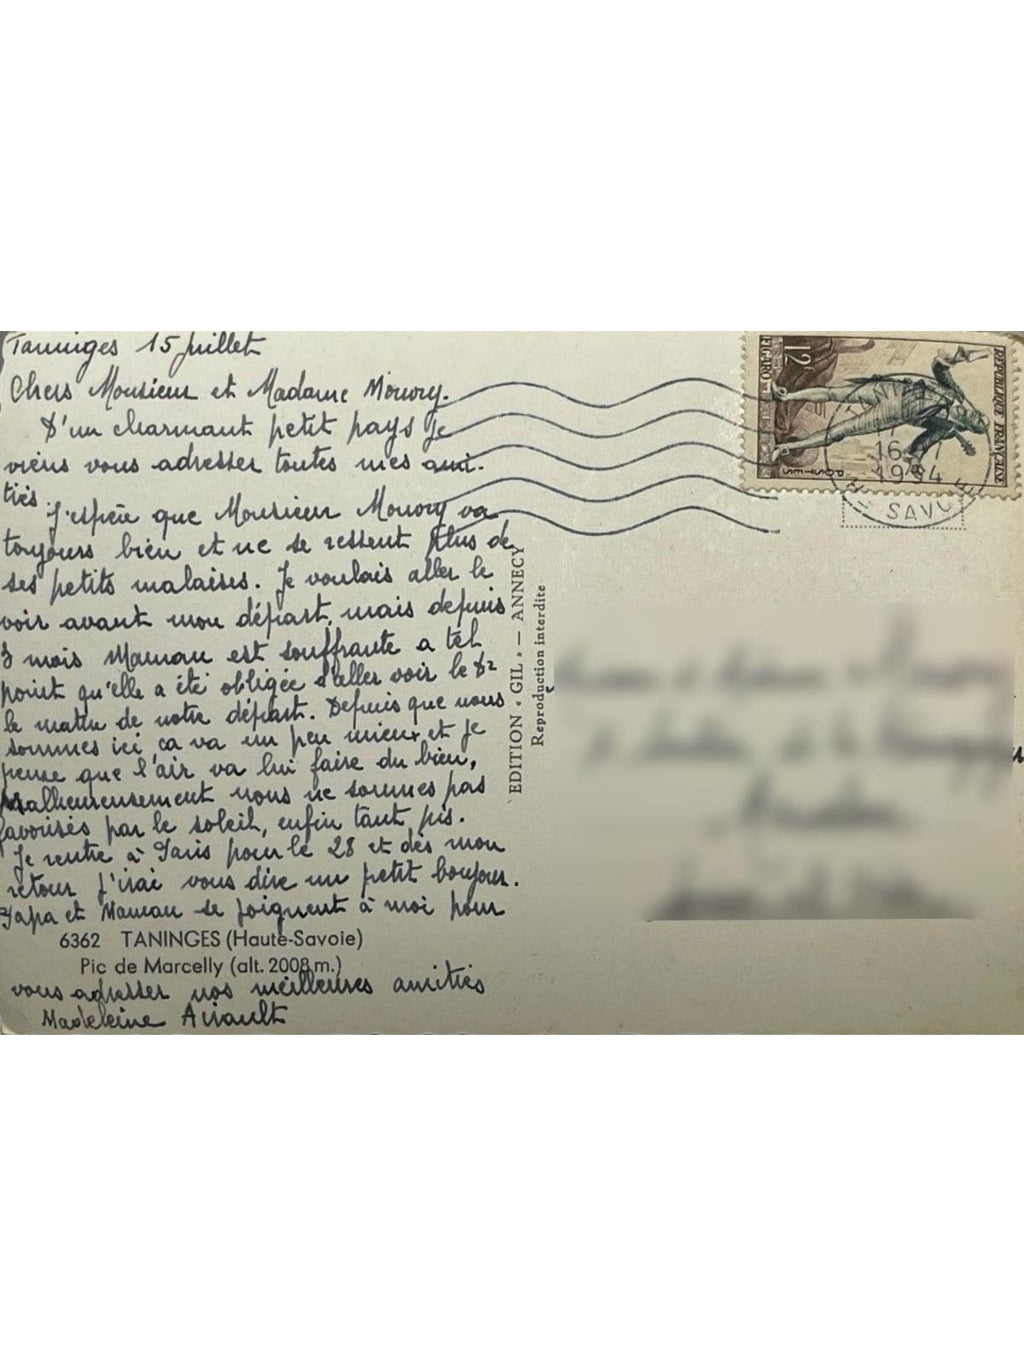 Taninges 15 juillet
Chers Monsieur et Madame Mouvry.
D'un charmant petit pays je
viens vous adresser toutes mes ami-
tiés.
J'espère que Monsieur Mouvry va
toujours bien et ne se ressent plus de
ses petits malaises. Je voulais aller le
voir avant mon départ, mais depuis
3 mois Maman est souffrante a tel
point qu'elle a été obligée d'aller voir le Dr
le matin de notre départ. Depuis que nous
sommes ici ca va un peu mieux et je
pense que l'air va lui faire du bien,
Malheureusement nous ne sommes pas
favorisés par le soleil, enfin tant pis.
Je rentre à Paris pour le 28 et dès mon
retour j'irai vous dire un petit bonjour.
Papa et Maman se joignent à moi pour
6362 TANINGES (Haute-Savoie)
Pic de Marcelly (alt. 2008 m.)
vous adresser nos meilleures amitiés
Madeleine Airault
EDITION « GIL » — ANNECY
Reproduction interdite
12F
FIGARO
REPUBLIQUE FRANÇAISE
POSTES
16-7
1954
HTE SAVOIE